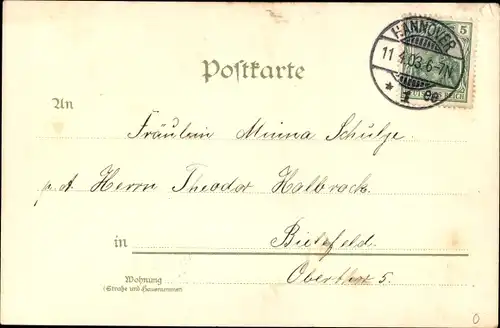 HANNOVER
11.4.03.6-7N.
* 1 ee
5
REICH
Postkarte
An
Fräulein Minna Schulze.
p. A. Herrn Theodor Halbrock.
in Bielefeld.
Oberthor 5.
Wohnung
(Straße und Hausnummer)
0